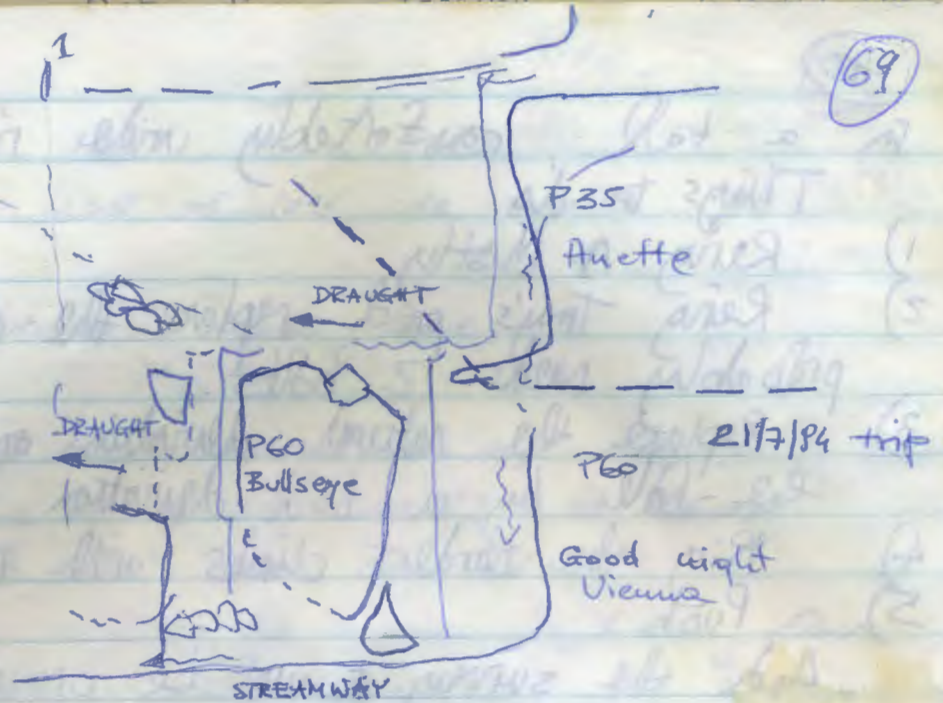 1
69
P35
Anette
DRAUGHT
DRAUGHT
P60
Bullseye
21/7/94 trip
P60
Good night
Vienna
STREAMWAY